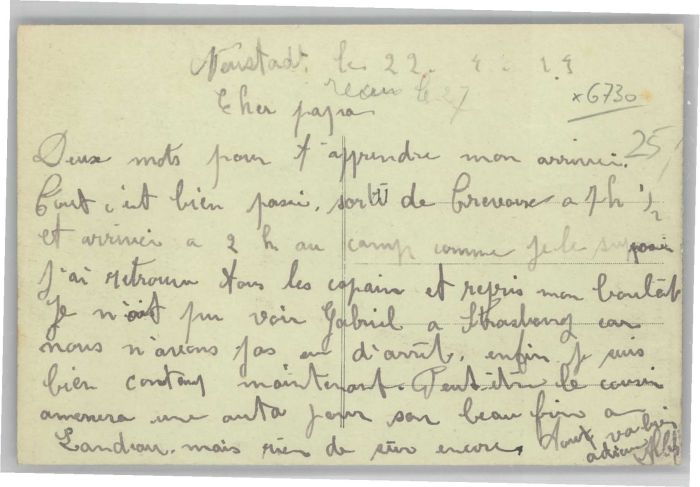 Neustadt, le 22.
recu le 27
x6730
Cher papa
25
Deux mots pour t'apprendre mon arrivei.
Tout c'est bien passi. sorti de Crevoux a 7h 1/2
et arrivei a 2 h au camp comme je le
j'ai retrouvu tous les copain et repris mon boulot
Je n'ait pu voir Gabriel a Strasbourg car
nous n'avons pas eu d'arrêt. enfin je suis
bien content maintenant. Peut être le cousin
amenera une auto pour son beau frère a
Landau. mais rien de sûr encore. Tout va bien
adieu